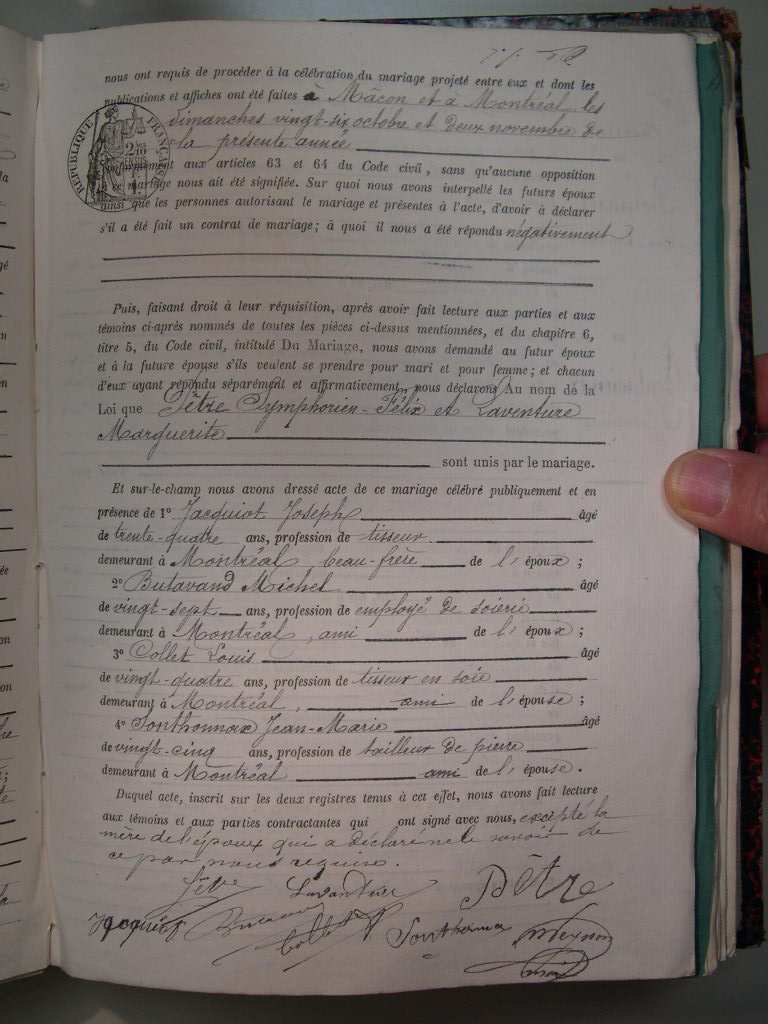 nous ont requis de procéder à la célébration du mariage projeté entre eux et dont les
publications et affiches ont été faites à Mâcon et à Montréal les
dimanches vingt-six octobre et deux novembre de
la présente année
RÉPUBLIQUE FRANÇAISE
Conformément aux articles 63 et 64 du Code civil, sans qu'aucune opposition
à ce mariage nous ait été signifiée. Sur quoi nous avons interpellé les futurs époux
ainsi que les personnes autorisant le mariage et présentes à l'acte, d'avoir à déclarer
s'il a été fait un contrat de mariage; à quoi il nous a été répondu négativement
Puis, faisant droit à leur réquisition, après avoir fait lecture aux parties et aux
témoins ci-après nommés de toutes les pièces ci-dessus mentionnées, et du chapitre 6,
titre 5, du Code civil, intitulé Du Mariage, nous avons demandé au futur époux
et à la future épouse s'ils veulent se prendre pour mari et pour femme; et chacun
d'eux ayant répondu séparément et affirmativement, nous déclarons Au nom de la
Loi que Pêtre Symphorien-Félix et Laventure
Marguerite
sont unis par le mariage.
Et sur-le-champ nous avons dressé acte de ce mariage célébré publiquement et en
présence de 1° Jacquiot Joseph âgé
de trente-quatre ans, profession de tisseur
demeurant à Montréal, beau-frère de l'époux;
2° Butavand Michel âgé
de vingt-sept ans, profession de employé de soierie
demeurant à Montréal, ami de l'époux;
3° Collet Louis âgé
de vingt-quatre ans, profession de tisseur en soie
demeurant à Montréal, ami de l'épouse;
4° Sonthonnax Jean-Marie âgé
de vingt-cinq ans, profession de tailleur de pierre
demeurant à Montréal ami de l'épouse.
Duquel acte, inscrit sur les deux registres tenus à cet effet, nous avons fait lecture
aux témoins et aux parties contractantes qui ont signé avec nous, excepté la
mère de l'époux qui a déclaré ne le savoir de
ce par nous requise.
Pêtre
Collet Sonthonnax